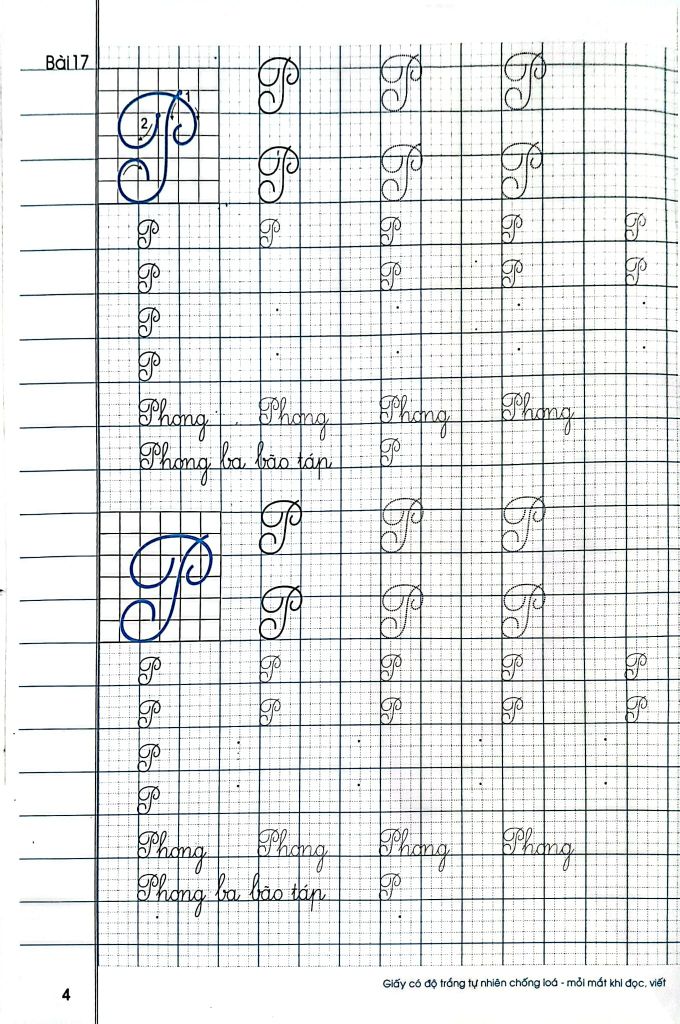 Bài 17
1
2
P P P
P P P
P P P P P
P P P P
P
P
Phong Phong Phong Phong
Phong ba bão táp P
P P P
P P P
P P P P P
P P P P P
P
P
Phong Phong Phong Phong
Phong ba bão táp P
4
Giấy có độ trắng tự nhiên chống loá - mỏi mắt khi đọc, viết